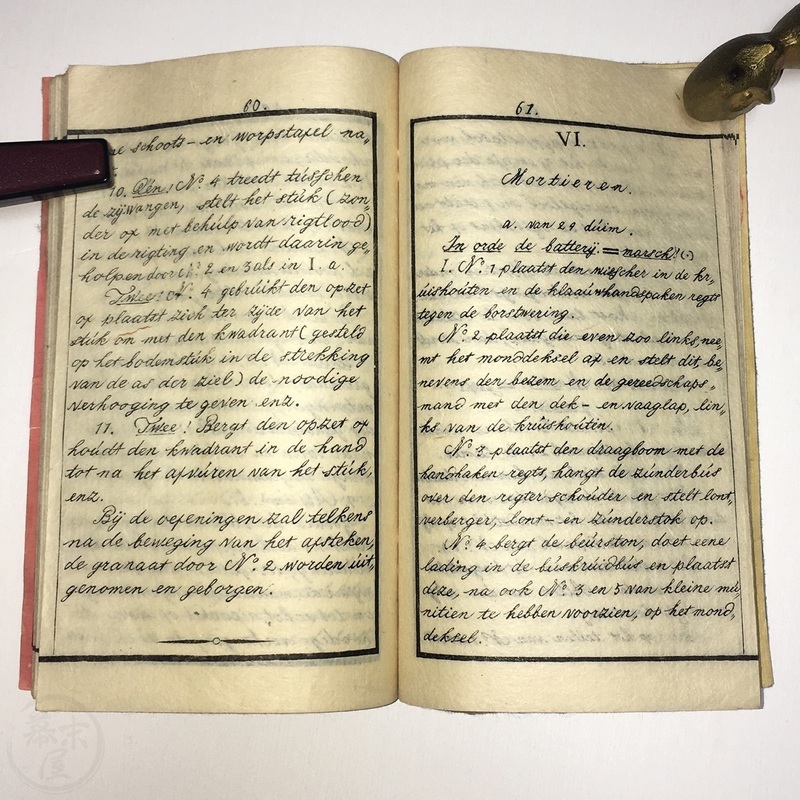 60.
schoots- en worpstafel na„
10. Één! No. 4 treedt tússchen
de zijwangen, stelt het stúk (zon„
der op met behúlp van rigtlood)
in de rigting en wordt daarin ge„
holpen door No. 2 en 3 als in I. a.
Twee! No. 4 gebrúikt den opzet
of plaatst zich ter zijde van het
stúk om met den kwadrant (gesteld
op het bodemstúk in de strekking
van de as der ziel) de noodige
verhooging te geven enz.
11. Twee! Bergt den opzet of
hoúdt den kwadrant in de hand
tot na het afvúren van het stúk,
enz.
Bij de oefeningen zal telkens
na de beweging van het afsteken,
de granaat door No. 2 worden úit„
genomen en geborgen.
61.
VI.
Mortieren.
a. van 29 dúim.
In orde de batterij = marsch! (·)
I. No. 1 plaatst den wisscher in de kr„
úishoúten en de klaaúwhandspaken regts
tegen de borstwering.
No. 2 plaatst die even zoo links, nee„
mt het monddeksel af en stelt dit, be„
nevens den bezem en de gereedschaps„
mand met den dek- en vaaglap, lin„
ks van de krúishoúten.
No. 3 plaatst den draagboom met de
handhaken regts, hangt de zúnderbús
over den regter schoúder en stelt lont„
verberger, lont- en zúnderstok op.
No. 4 bergt de beúrston, doet eene
lading in de búskrúidbús en plaatst
deze, na ook No. 3 en 5 van kleine mú„
nitien te hebben voorzien, op het mond„
deksel.
幕末屋